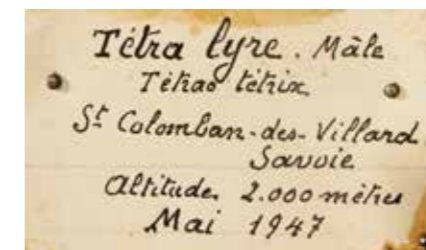 Tétra lyre. Mâle
Tétrao tétrix
St Colomban-des-Villard
Savoie
Altitude. 2.000 mètres
Mai 1947